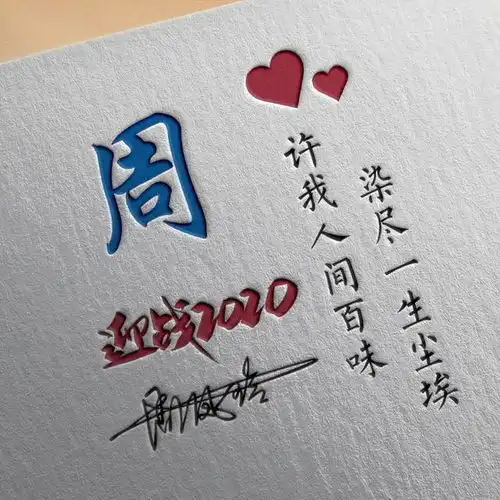 周
迎战2020
许我人间百味
染尽一生尘埃